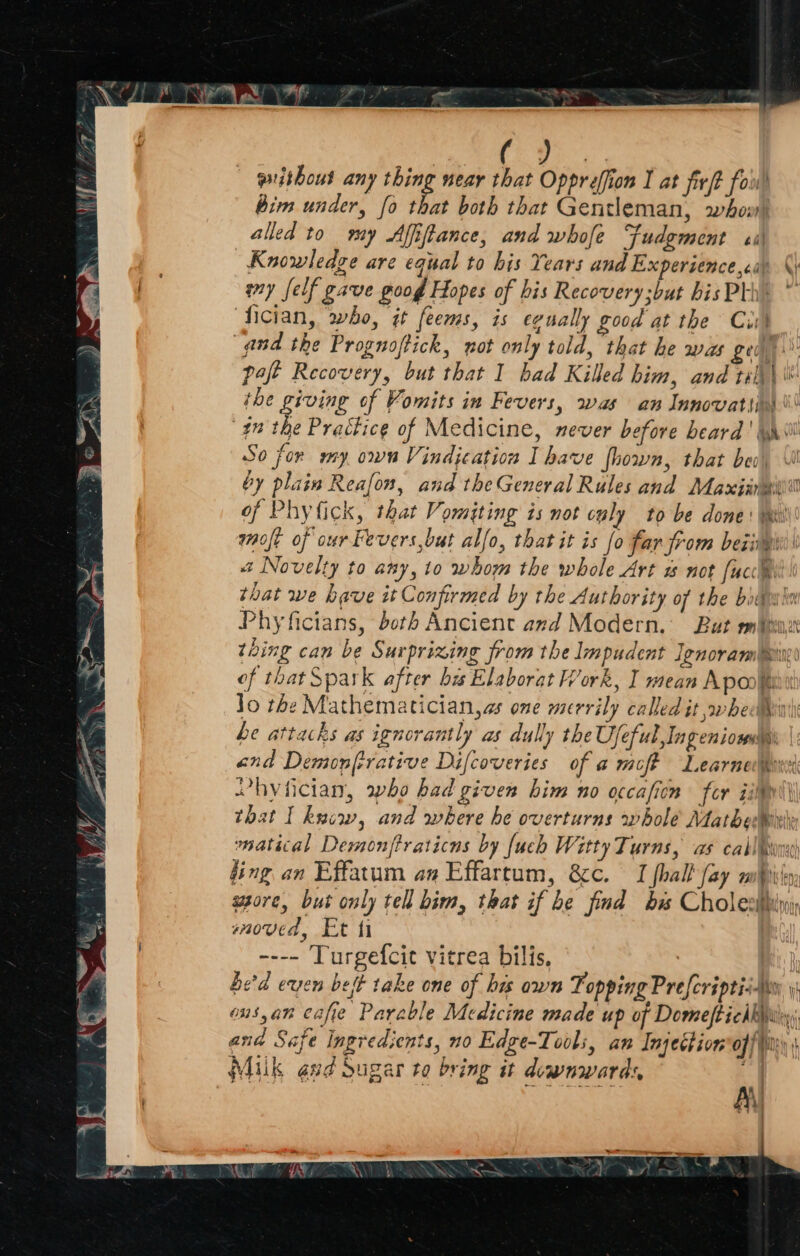 ( )
without any thing near that Oppreſſion I at firſt fou
him under, ſo that both that Gentleman, who
alled to my Aſſiſtance, and whoſe Judgment
Knowledge are equal to his Years and Experience,
my ſelf gave good Hopes of his Recovery;but his Phy
ſician, who, it ſeems, is equally good at the
and the Prognoſtick, not only told, that he was
paſt Recovery, but that I had Killed him, and
the giving of Vomits in Fevers, was an Innovati
in the Practice of Medicine, never before heard
So for my own Vindication I have ſhown, that
by plain Reaſon, and the General Rules and Maxi
of Phyſick, that Vomiting is not only to be done
moſt of our Fevers,but alſo, that it is ſo far from
a Novelty to any, to whom the whole Art is not
that we have it Confirmed by the Authority of the
Phyſicians, both Ancient and Modern. But
thing can be Surprizing from the Impudent Ignoran
of that Spark after his Elaborat Work, I mean Apo
lo the Mathematician,as one merrily called it,
he attacks as ignorantly as dully the Uſeful,Ingenio
and Demonſtrative Diſcoveries of a moſt Learne
Phyſician, who had given him no occaſion for
that I know, and where he overturns whole Mathe
matical Demonſtrations by ſuch Witty Turns, as cal
ling an Effatum an Effartum, &c. I ſhall ſay
more, but only tell him, that if he find his Chole
moved, Et ſi
---- Turgeſcit vitrea bilis,
he'd even beſt take one of his own Topping Preſcripti
ons,an eaſie Parable Medicine made up of Domeſtick
and Safe Ingredients, no Edge-Tools, an Injection of
Milk and Sugar to bring it downwards.